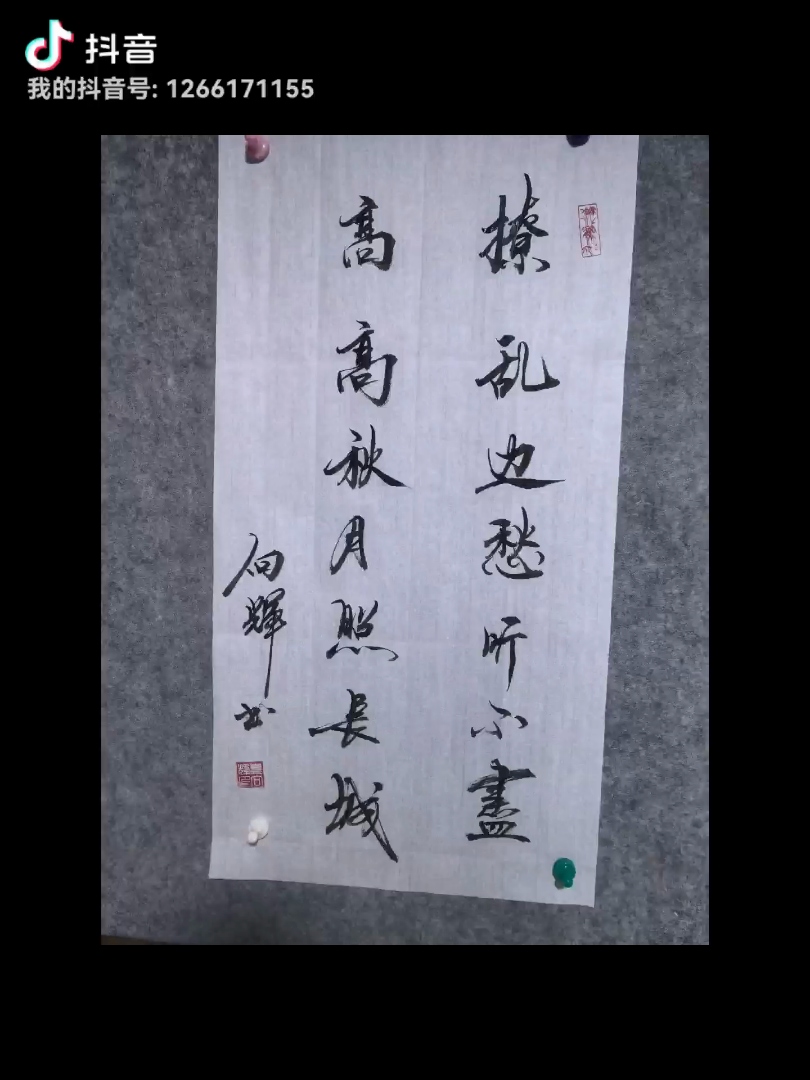 抖音
我的抖音号: 1266171155
撩乱边愁听不盡
高高秋月照长城
向輝书